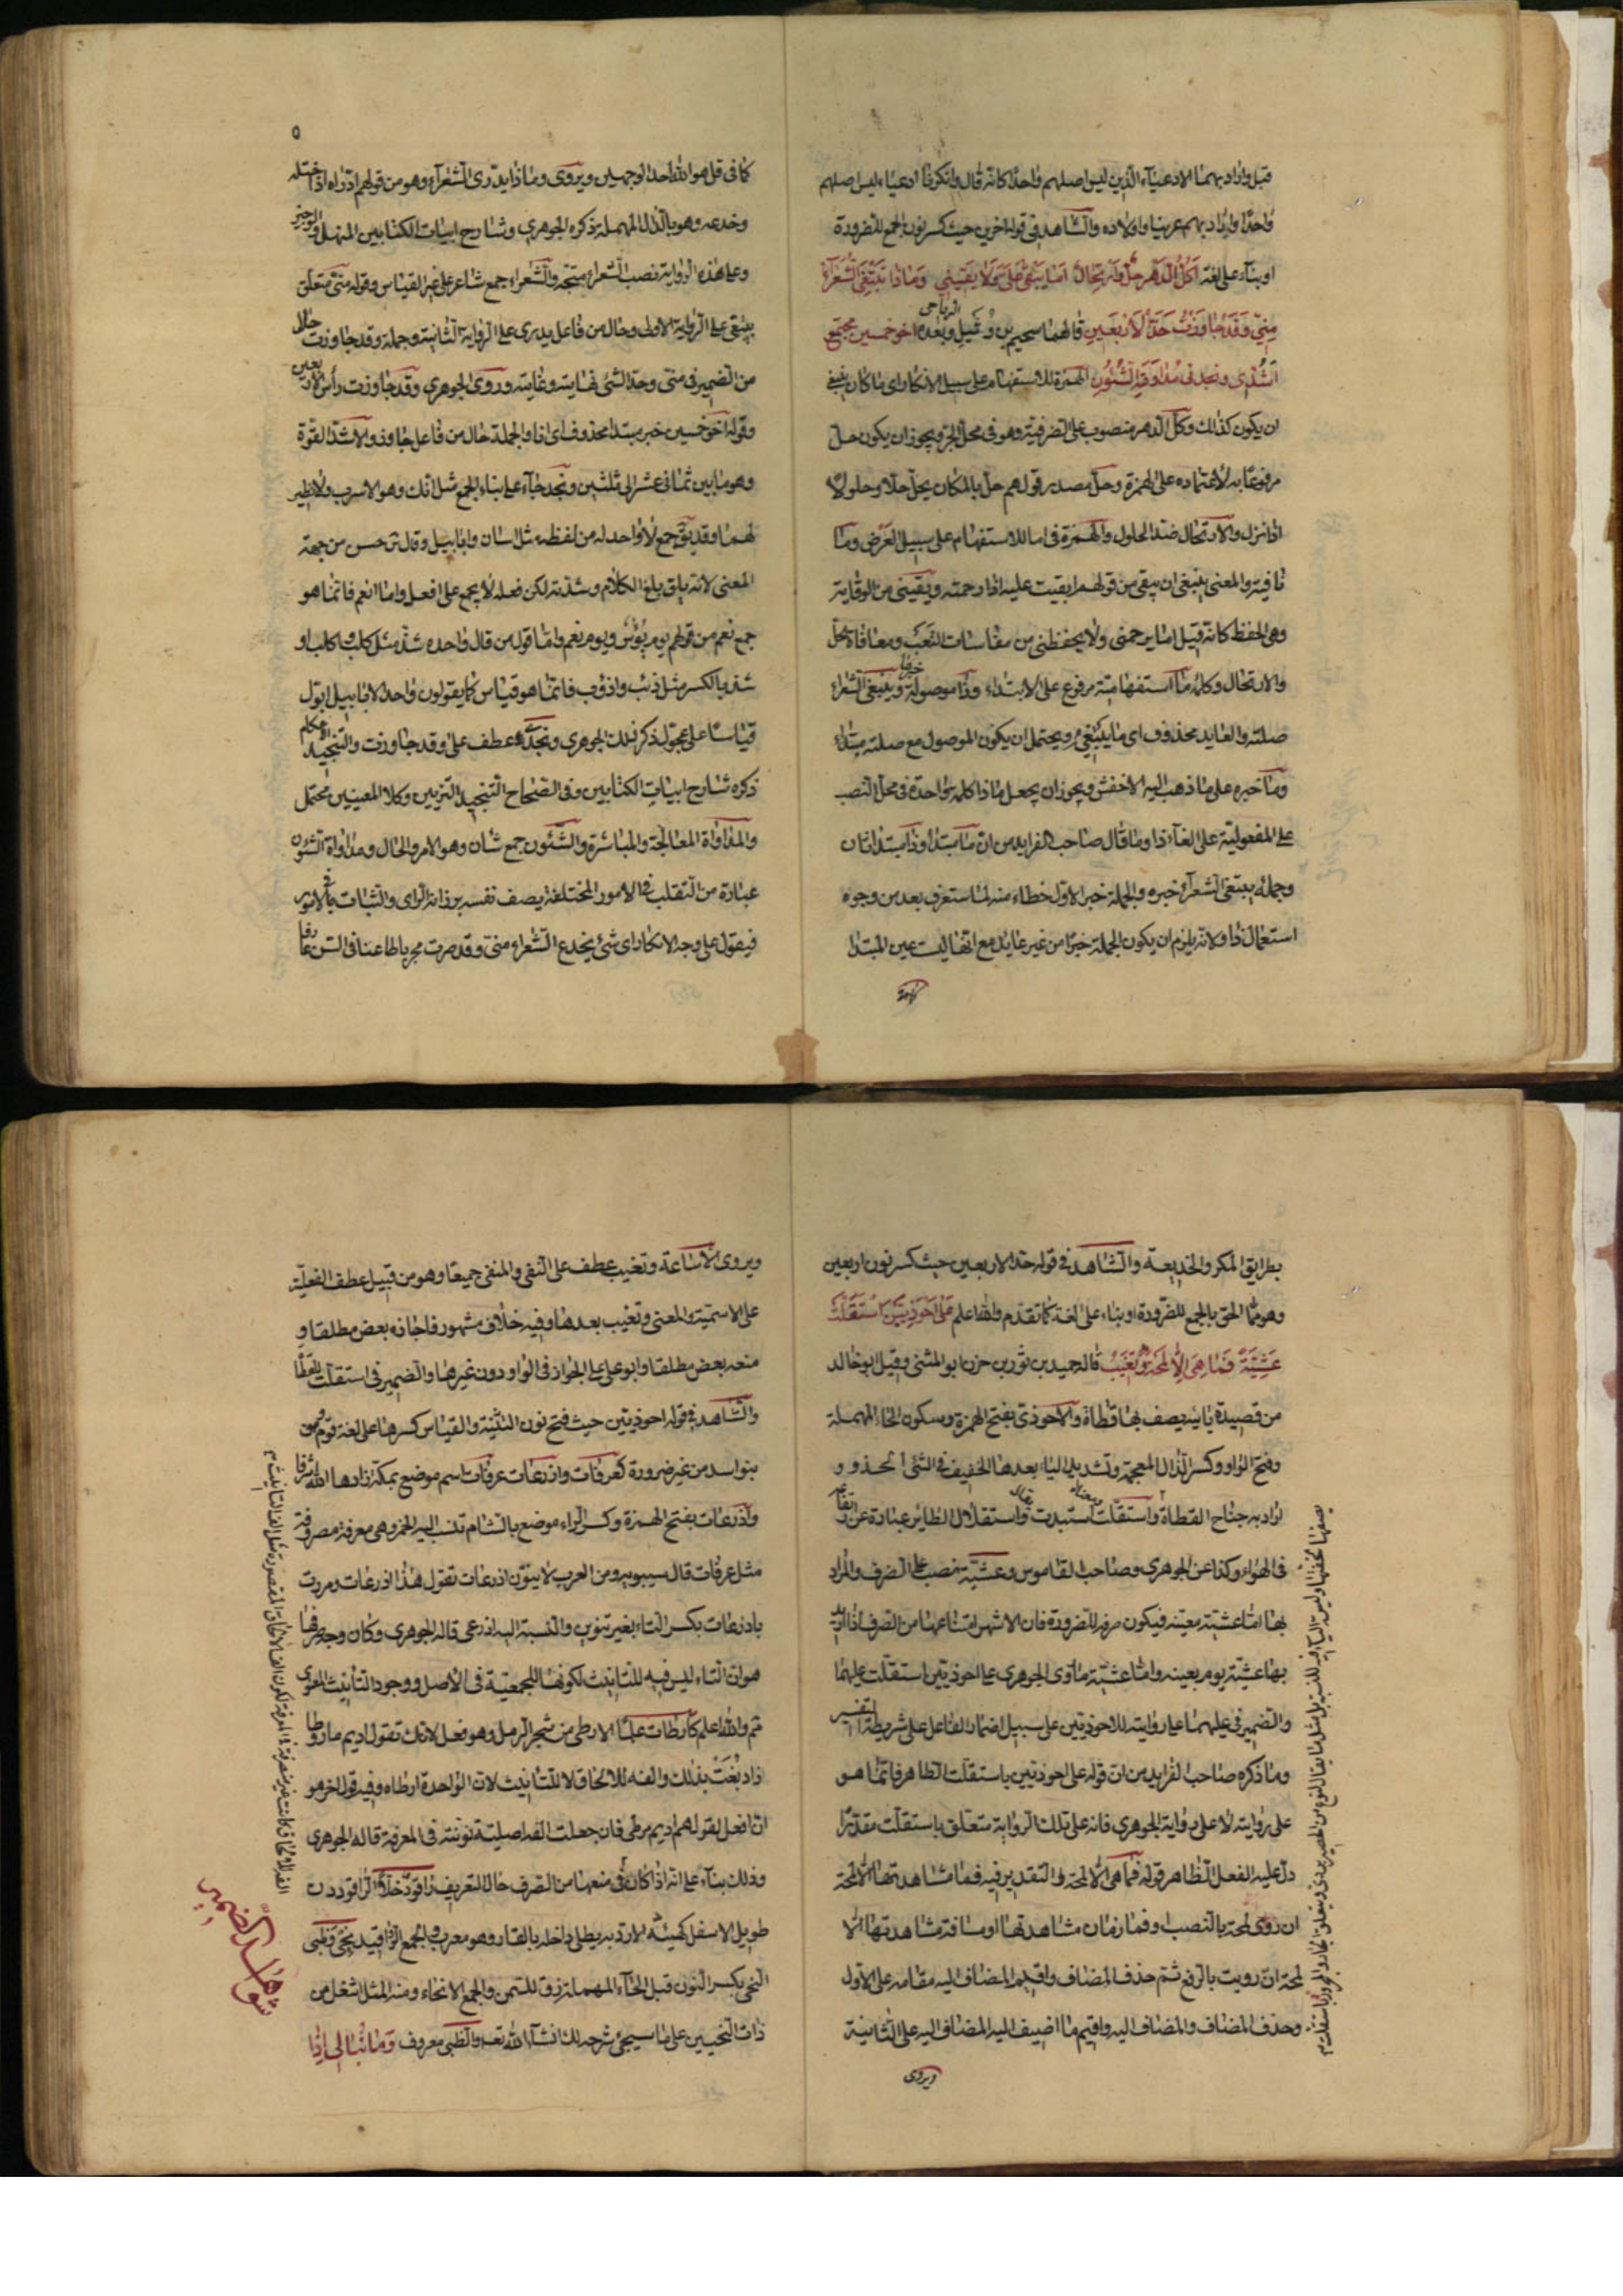 قبل واراد بهما الادعياء الذين ليس اصلهم واحدا كانه قال وانكرنا ادعياء ليس اصلهم
واحدا واراد بهم عرينا واولاده والشاهد فى قوله اخرين حيث كسر نون الجمع للضرورة
او بناء على لغة اكل الدهر حل وارتحال اما يبقى على ولا يقينى وماذا تبتغى الشعراء
منى وقد جاوزت حد الاربعين قالهما سحيم بن وثيل الرياحى وبعده اخو خمسين مجتمع
اشدى ونجذنى مداورة الشئون الهمزة للاستفهام على سبيل الانكار اى ما كان ينبغى
ان يكون كذلك وكل الدهر منصوب على الظرفية وهو فى محل الخبر ويجوز ان يكون حل
مرفوعا به لاعتماده على الهمزة وحل مصدر قولهم حل بالمكان يحل حلا وحلولا
اذا نزل والارتحال ضد الحلول والهمزة فى اما للاستفهام على سبيل العرض وما
نافية والمعنى ينبغى ان يبقى من قولهم ابقيت عليه اذا رحمته ويقينى من الوقاية
وهى الحفظ كانه قيل اما يرحمنى ولا يحفظنى من مقاسات التعب ومعاناة الحل
والارتحال وكلمة ما استفهامية مرفوع على الابتداء وذا موصولة خبرها ويبتغى الشعراء
صلته والعايد محذوف اى ما يبتغيه ويحتمل ان يكون الموصول مع صلته مبتداء
وما خبره على ما ذهب اليه الاخفش ويجوز ان يجعل ماذا كلمة واحدة فى محل النصب
على المفعولية على الغاء ذا وما قال صاحب الفرايد من ان ما مبتدا وذا مبتدا ثان
وجملة يبتغى الشعراء خبره والجملة خبر الاول خطاء منه لما ستعرف بعد من وجوه
استعمال ذا ولانه يلزم ان يكون الجملة خبرا من غير عايد مع انها ليست عين المبتدا
كما
٥
كما فى قل هو الله احد الوجهين ويروى وماذا يدرى الشعراء وهو من قولهم ادراه اذا ختله
وخدعه وهو بالدال المهملة ذكره الجوهرى وشارح ابيات الكتابين المنهل والوجيز
وعلى هذه الرواية نصب الشعراء متجه والشعراء جمع شاعر على غير القياس وقوله منى متعلق
بيبتغى على الرواية الاولى وحال من فاعل يدرى على الرواية الثانية وجملة وقد جاوزت حال
من الضمير فى منى وحد الشئ نهايته وغايته وروى الجوهرى وقد جاوزت رأس الاربعين
وقوله اخو خمسين خبر مبتدا محذوف اى انا والجملة حال من فاعل جاوز والاشد القوة
وهو ما بين ثمانى عشر الى ثلثين ونجد جاء على بناء الجمع مثل انك وهو الاسرب ولا نظير
لهما وقد يق جمع لا واحد له من لفظه مثل اسان وابابيل وقال س حسن من جهة
المعنى لانه يق بلغ الكلام وشدته لكن فعله لا يجمع على افعل واما انعم فانما هو
جمع نعم من قولهم يوم بؤس ويوم نعم واما قول من قال واحده شد مثل كلب واكلب او
شد بالكسر مثل ذئب واذؤب فانما هو قياس كما يقولون واحد الابابيل ابول
قياسا على عجول ذكر ذلك الجوهرى ونجذ عطف على وقد جاوزت والتنجيد الاحكام
ذكره شارح ابيات الكتابين وفى الصحاح التنجيد التزيين وكلا المعنيين محتمل
والمداواة المعالجة والمباشرة والشئون جمع شان وهو الامر والحال ومداواة الشئون
عبارة من التقلب فى الامور المختلفة يصف نفسه برزانة الراى والثبات فى الامور
فيقول على وجه الانكار اى شئ يخدع الشعراء منى وقد صرت مجربا طاعنا فى السن عارفا
بطرايق المكر والخديعة والشاهد فى قوله حد الاربعين حيث كسر نون اربعين
وهو مما الحق بالجمع للضرورة او بناء على لغة كما تقدم والله اعلم على احوذيين استقلت
عشية فما هى الا لمحة وتغيب قاله حميد بن ثور بن حزن ابو المثنى وقيل ابو خالد
من قصيدة يائية يصف بها قطاة والاحوذى بفتح الهمزة وسكون الحاء المهملة
وفتح الواو وكسر الذال المعجمة وتشديد الياء بعدها الخفيف فى الشئ لحذوه و
اراد به جناح القطاة واستقلت استبدت واستقلال الطاير عبارة عن ارتفاعه
فى الهواء وكذا عن الجوهرى وصاحب القاموس وعشية نصب على الظرف والمراد
بها اما عشية معينة فيكون صرفه للضرورة فان الاشهر امتناعها من الصرف اذا اريد
بها عشية يوم بعينه واما عشية ما وى الجوهرى على احوذيين استقلت عليهما
والضمير فى عليهما على روايته للاحوذيين على سبيل اضمار الفاعل على شريطة التفسير
وما ذكره صاحب الفرايد من ان قوله على احوذيين باستقلت الظاهر فانما هو
على روايته لا على رواية الجوهرى فانه على تلك الرواية متعلق باستقلت مقدرا
دل عليه الفعل الظاهر قوله فما هى الا لمحة والتقدير فيه فما مشاهدتها الا لمحة
ان روى لمحة بالنصب وفما زمان مشاهدتها او مسافة مشاهدتها الا
لمحة ان رويت بالرفع ثم حذف المضاف واقيم المضاف اليه مقامه على الاول
وحذف المضاف والمضاف اليه واقيم ما اضيف اليه المضاف اليه على الثانية
ويروى
ويروى الا ساعة وتغيب عطف على النفى والمنفى جميعا وهو من قبيل عطف الفعلية
على الاسمية والمعنى وتغيب بعدها وفيه خلاف مشهور فاجازه بعض مطلقا و
منعه بعض مطلقا وابو على على الجواز فى الواو دون غيرها والضمير فى استقلت للقطا
والشاهد فى قوله احوذيين حيث فتح نون التثنية والقياس كسرها على لغة قوم وهم
بنو اسد من غير ضرورة كعرفات واذرعات عرفات اسم موضع بمكة زادها الله شرفا
واذرعات بفتح الهمزة وكسر الراء موضع بالشام تنسب اليه الخمر وهى معرفة مصروفة
مثل عرفات قال سيبويه ومن العرب لا ينون اذرعات تقول هذا اذرعات ومررت
باذرعات بكسر التاء بغير تنوين والنسبة اليه اذرعى قاله الجوهرى وكان وجه صرفها
هو ان التاء ليس فيه للتانيث لكونها للجمعية فى الاصل ووجود التأنيث المعنوى
ثم والله اعلم كارطات علما الارطى من شجر الرمل وهو فعلى لانك تقول اديم ماروط
اذا دبغت بذلك والفه للالحاق لا للتانيث لان الواحدة ارطاه وفيه قول اخر هو
انه افعل لقولهم اديم مرطى فان جعلت الفه اصلية نونته فى المعرفة قاله الجوهرى
وذلك بناء على انه اذا كان فى منعها من الصرف حال التعريف راقود خلا الراقود دن
طويل الاسفل كهيئة الاردبه يطلى داخله بالقار وهو معرب والجمع الرواقيد نحى وظبى
النحى بكسر النون قبل الحاء المهملة زق للسمن والجمع الانحاء ومنه المثل اشغل من
ذات النحيين على ما سيجئ شرحه لك انشاء الله تعه والظبى معروف وما نبالى اذا
شواهد الضمير